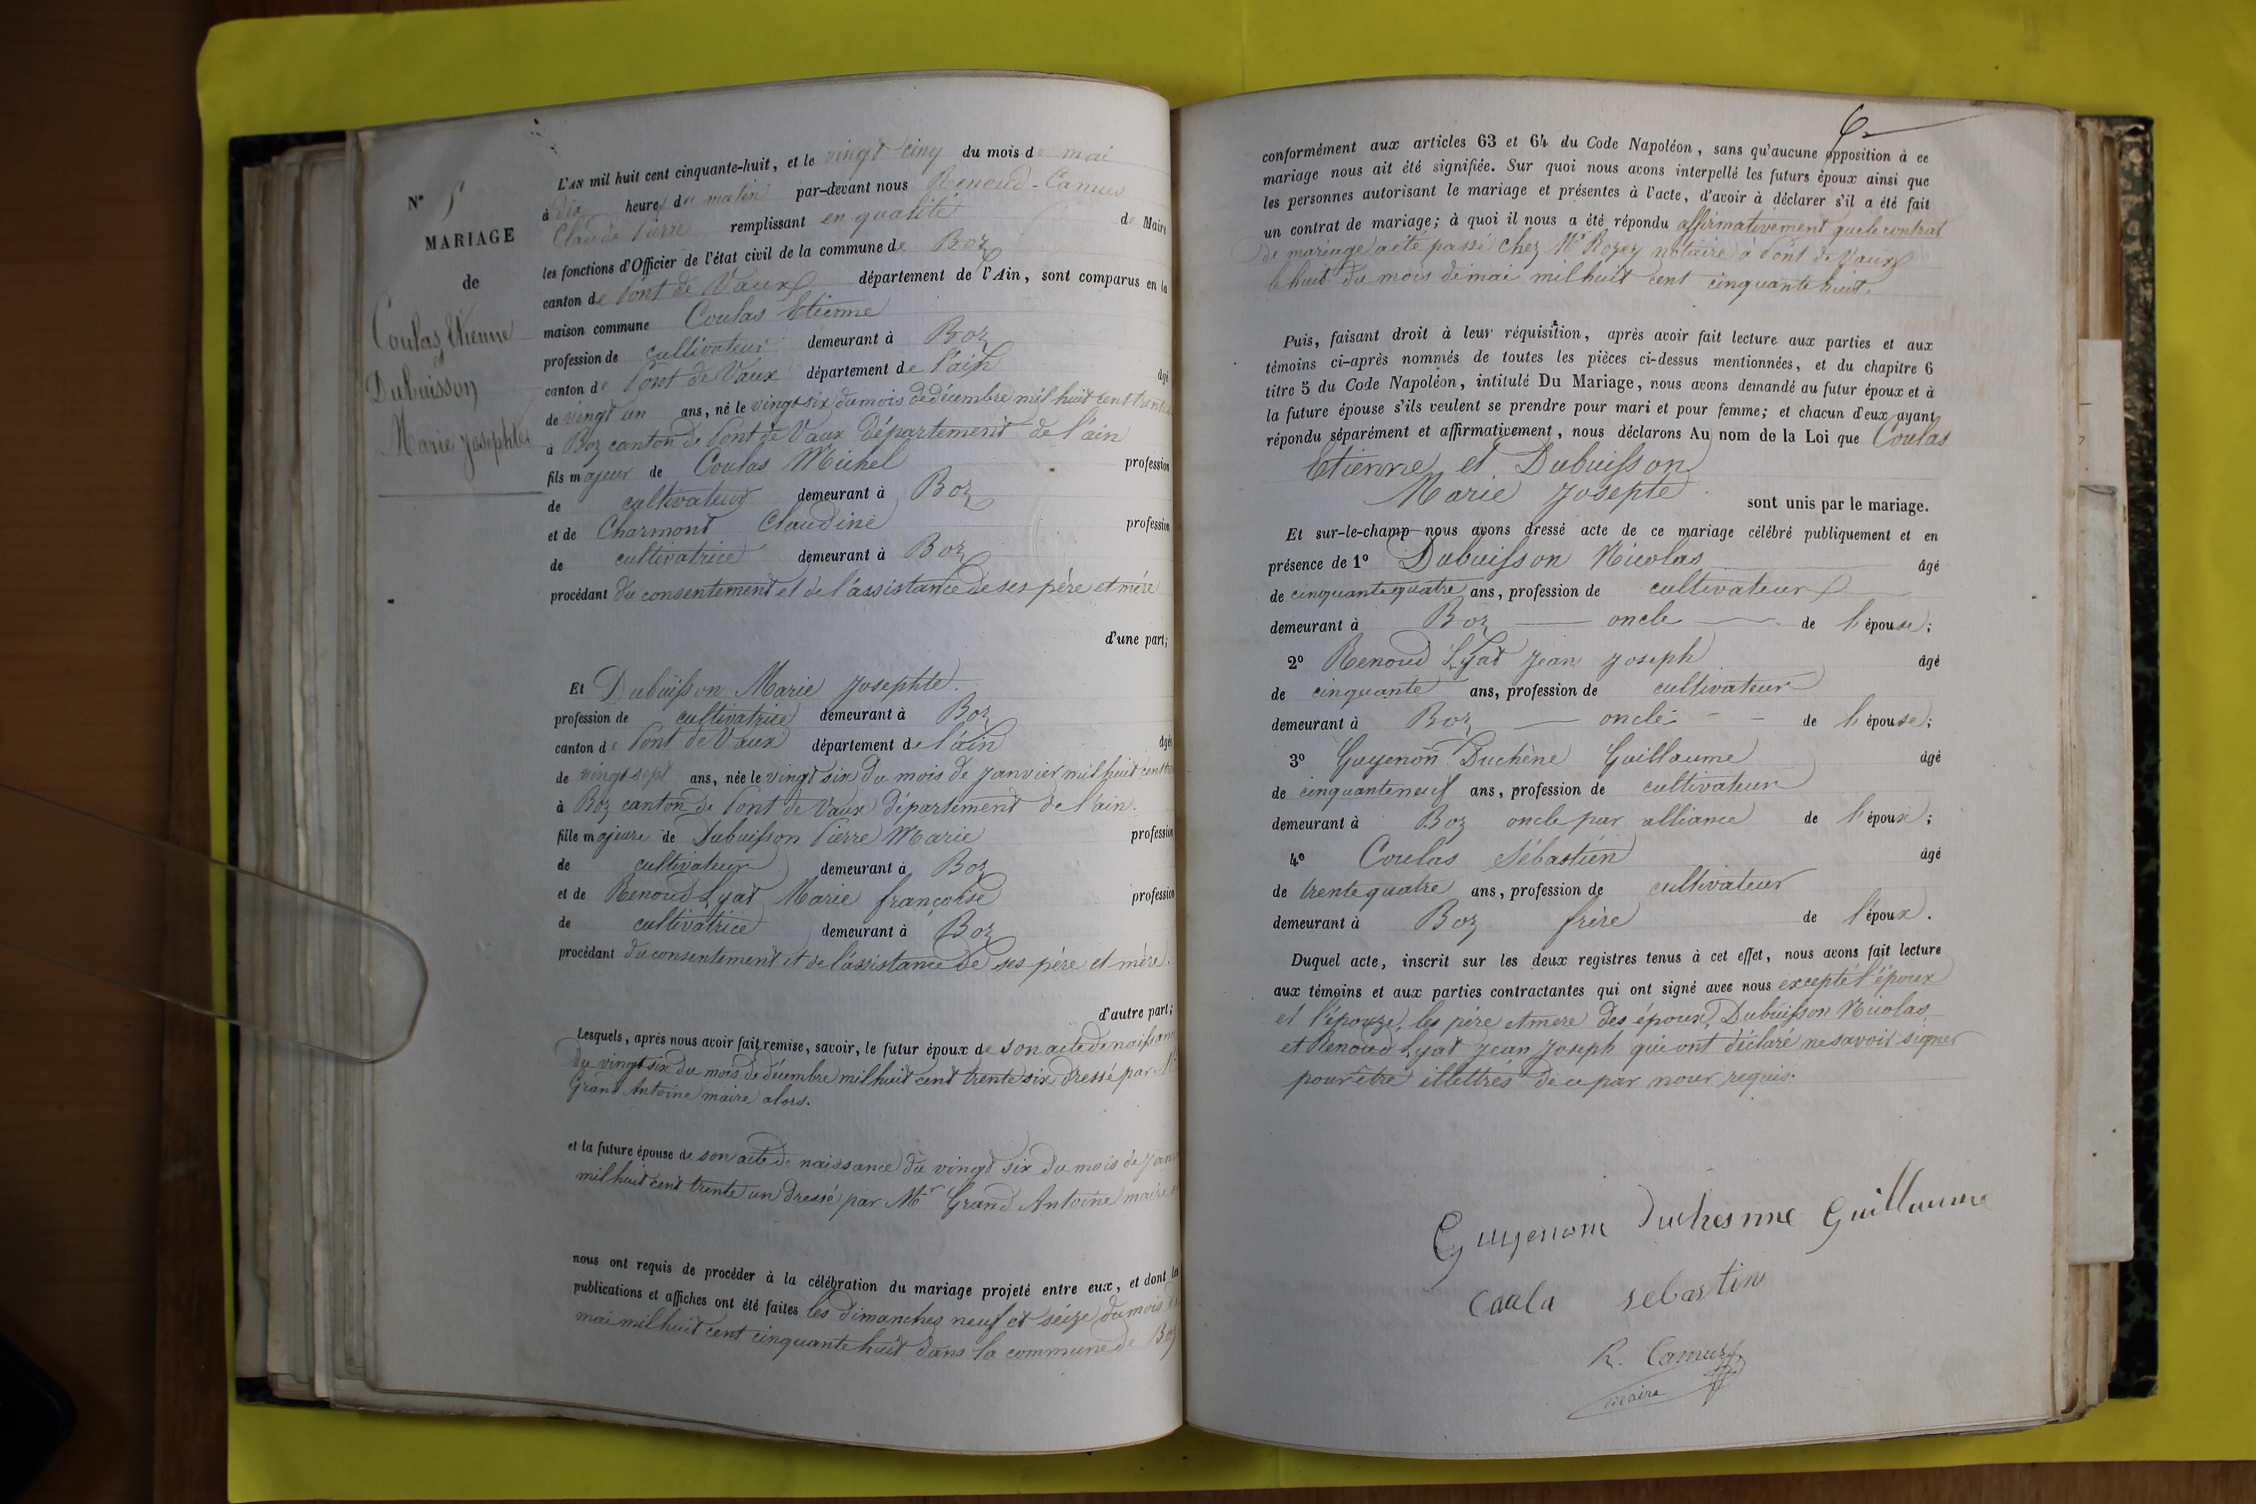 N° 5
MARIAGE
de
Coulas Etienne
et
Dubuisson
Marie Josephte
L'AN mil huit cent cinquante-huit, et le vingt cinq du mois de mai
à dix heures du matin par-devant nous Renoud-Camus
Claude Pierre remplissant en qualité de Maire
les fonctions d'Officier de l'état civil de la commune de Boz
canton de Pont de Vaux département de l'Ain, sont comparus en la
maison commune Coulas Etienne
profession de cultivateur demeurant à Boz
canton de Pont de Vaux département de l'ain âgé
de vingt un ans, né le vingt six du mois de décembre mil huit cent trente
à Boz canton de Pont de Vaux Département de l'ain
fils majeur de Coulas Michel profession
de cultivateur demeurant à Boz
et de Charmont Claudine profession
de cultivatrice demeurant à Boz
procédant du consentement et de l'assistance de ses père et mère
d'une part;
Et Dubuisson Marie Josephte
profession de cultivatrice demeurant à Boz
canton de Pont de Vaux département de l'ain âgée
de vingt sept ans, née le vingt six du mois de janvier mil huit cent
à Boz canton de Pont de Vaux département de l'ain.
fille majeure de Dubuisson Pierre Marie profession
de cultivateur demeurant à Boz
et de Renoud Lyat Marie françoise profession
de cultivatrice demeurant à Boz
procédant du consentement et de l'assistance de ses père et mère.
d'autre part;
Lesquels, après nous avoir fait remise, savoir, le futur époux de son acte de naissance
du vingt six du mois de décembre mil huit cent trente six dressé par Mr
Grand Antoine maire alors.
et la future épouse de son acte de naissance du vingt six du mois de janv
mil huit cent trente un dressé par Mr Grand Antoine maire
nous ont requis de procéder à la célébration du mariage projeté entre eux, et dont les
publications et affiches ont été faites les dimanches neuf et seize du mois de
mai mil huit cent cinquante huit dans la commune de Boz
6
conformément aux articles 63 et 64 du Code Napoléon, sans qu'aucune opposition à ce
mariage nous ait été signifiée. Sur quoi nous avons interpellé les futurs époux ainsi que
les personnes autorisant le mariage et présentes à l'acte, d'avoir à déclarer s'il a été fait
un contrat de mariage; à quoi il nous a été répondu affirmativement que le contrat
de mariage a été passé chez Mr Rozey notaire à Pont de Vaux
le huit du mois de mai mil huit cent cinquante huit.
Puis, faisant droit à leur réquisition, après avoir fait lecture aux parties et aux
témoins ci-après nommés de toutes les pièces ci-dessus mentionnées, et du chapitre 6
titre 5 du Code Napoléon, intitulé Du Mariage, nous avons demandé au futur époux et à
la future épouse s'ils veulent se prendre pour mari et pour femme; et chacun d'eux ayant
répondu séparément et affirmativement, nous déclarons Au nom de la Loi que Coulas
Etienne et Dubuisson
Marie Josepte sont unis par le mariage.
Et sur-le-champ nous avons dressé acte de ce mariage célébré publiquement et en
présence de 1° Dubuisson Nicolas âgé
de cinquante quatre ans, profession de cultivateur
demeurant à Boz oncle de l'épouse;
2° Renoud Lyat Jean Joseph âgé
de cinquante ans, profession de cultivateur
demeurant à Boz oncle de l'épouse;
3° Guyenon Duchène Guillaume âgé
de cinquante neuf ans, profession de cultivateur
demeurant à Boz oncle par alliance de l'époux;
4° Coulas Sébastien âgé
de trente quatre ans, profession de cultivateur
demeurant à Boz frère de l'époux.
Duquel acte, inscrit sur les deux registres tenus à cet effet, nous avons fait lecture
aux témoins et aux parties contractantes qui ont signé avec nous excepté l'époux
et l'épouze, les père et mere des époux, Dubuisson Nicolas
et Renoud Lyat Jean Joseph qui ont déclaré ne savoir signer
pour être illettrés de ce par nour requis.
Guyenom Duchesnne Guillaume
Caula sebastin
R. Camus
maire